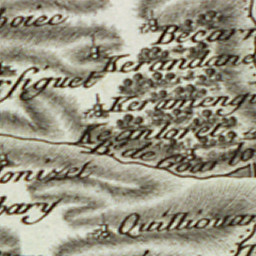 hoiec
Becarr
Kerandane
rsiguet
Keramengu
Keanloret
R. de Gbarlo
onizet
bary
Quilliouar